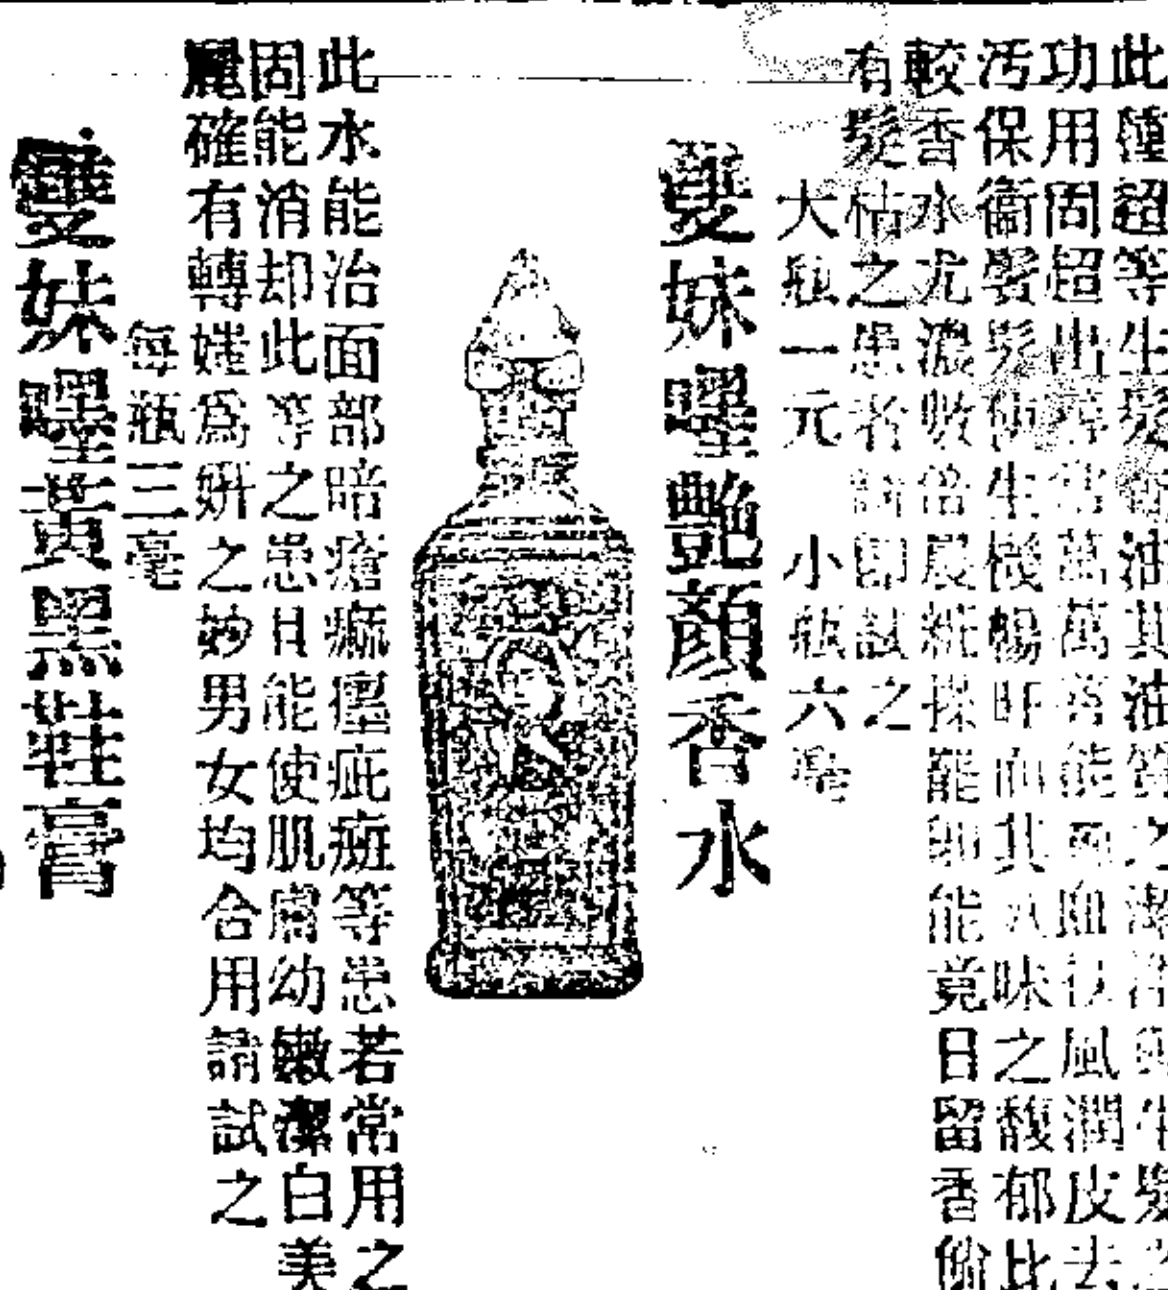 此種超等生髮衛油其油質之潔淨與生髮之
功用周超出尋常萬萬旣能西血祛風潤皮去
汚保衞鬚髮使生機暢旺而其氣味之馥郁比
較香水尤濃收倍晨粧搽罷卽能竟日留香倘
有髮枯之患者請卽試之
大瓶一元 小瓶六毫
雙妹嚜艶顔香水
此水能治面部暗瘡癍瘂疵斑等恙若常用之
固能消却此等之患且能使肌膚幼嫩潔白美
麗確有轉媸爲姸之妙男女均合用請試之
每瓶三毫
雙妹嚜黃黑鞋膏